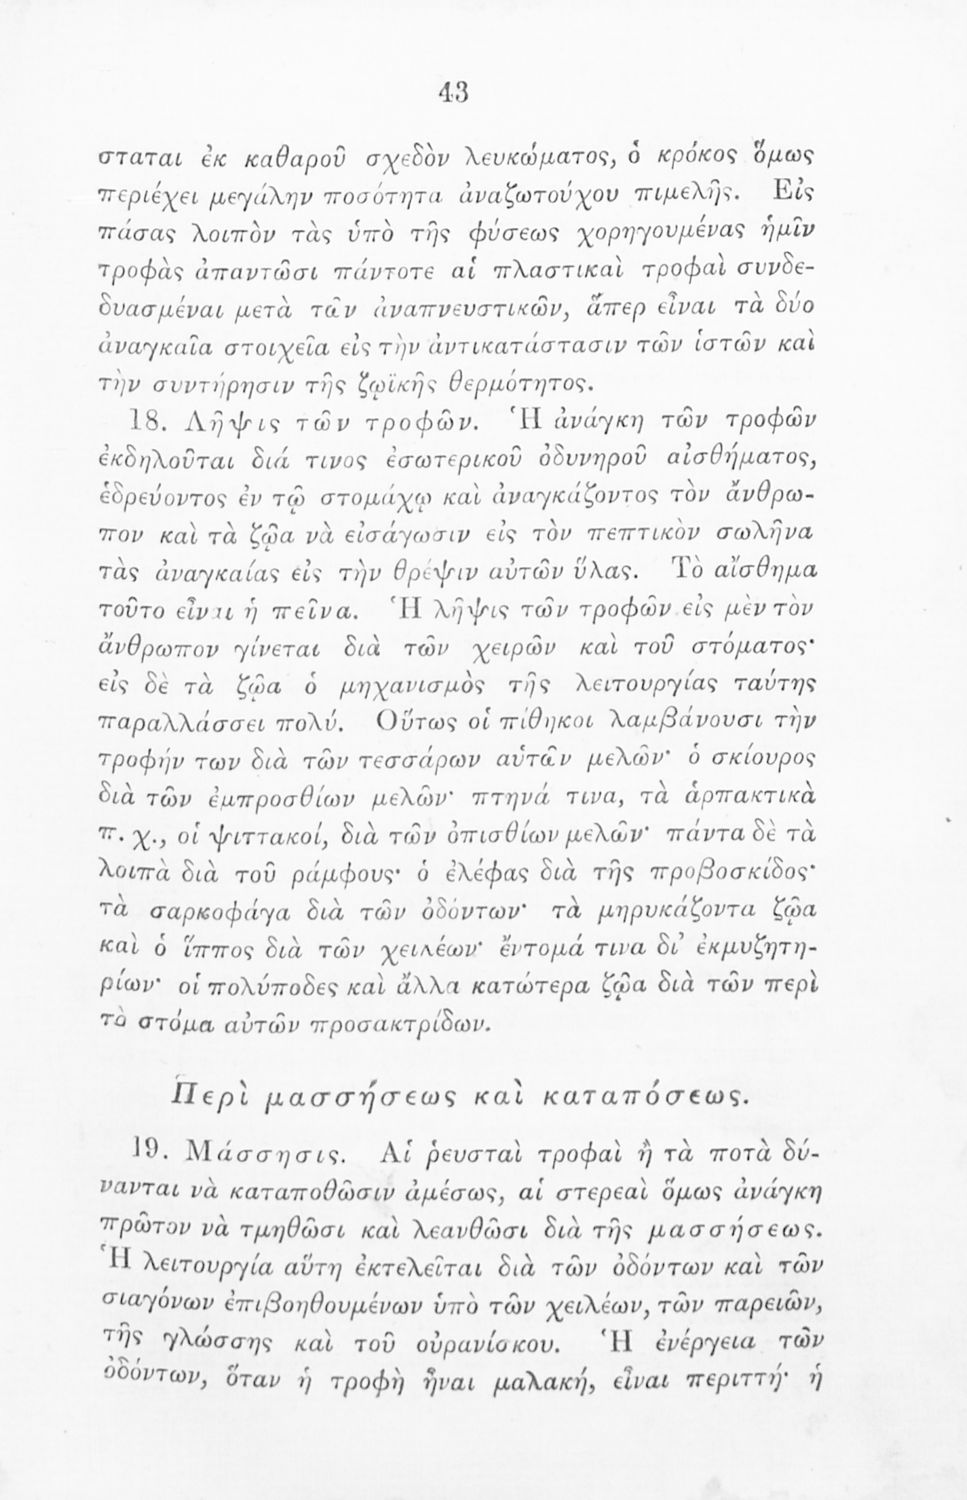 43
σταται ἐκ καθαροῦ σχεδὸν λευκώματος, ὁ κρόκος ὅμως
περιέχει μεγάλην ποσότητα ἀναζωτούχου πιμελῆς. Εἰς
πάσας λοιπὸν τὰς ὑπὸ τῆς φύσεως χορηγουμένας ἡμῖν
τροφὰς ἀπαντῶσι πάντοτε αἱ πλαστικαὶ τροφαὶ συνδε-
δυασμέναι μετὰ τῶν ἀναπνευστικῶν, ἅπερ εἶναι τὰ δύο
ἀναγκαῖα στοιχεῖα εἰς τὴν ἀντικατάστασιν τῶν ἱστῶν καὶ
τὴν συντήρησιν τῆς ζῳϊκῆς θερμότητος.
18. Λῆψις τῶν τροφῶν. Ἡ ἀνάγκη τῶν τροφῶν
ἐκδηλοῦται διά τινος ἐσωτερικοῦ ὀδυνηροῦ αἰσθήματος,
ἑδρεύοντος ἐν τῷ στομάχῳ καὶ ἀναγκάζοντος τὸν ἄνθρω-
πον καὶ τὰ ζῷα νὰ εἰσάγωσιν εἰς τὸν πεπτικὸν σωλῆνα
τὰς ἀναγκαίας εἰς τὴν θρέψιν αὐτῶν ὕλας. Τὸ αἴσθημα
τοῦτο εἶναι ἡ πεῖνα. Ἡ λῆψις τῶν τροφῶν εἰς μὲν τὸν
ἄνθρωπον γίνεται διὰ τῶν χειρῶν καὶ τοῦ στόματος·
εἰς δὲ τὰ ζῷα ὁ μηχανισμὸς τῆς λειτουργίας ταύτης
παραλλάσσει πολύ. Οὕτως οἱ πίθηκοι λαμβάνουσι τὴν
τροφήν των διὰ τῶν τεσσάρων αὐτῶν μελῶν· ὁ σκίουρος
διὰ τῶν ἐμπροσθίων μελῶν· πτηνά τινα, τὰ ἁρπακτικὰ
π. χ., οἱ ψιττακοί, διὰ τῶν ὀπισθίων μελῶν· πάντα δὲ τὰ
λοιπὰ διὰ τοῦ ράμφους· ὁ ἐλέφας διὰ τῆς προβοσκίδος·
τὰ σαρκοφάγα διὰ τῶν ὀδόντων· τὰ μηρυκάζοντα ζῷα
καὶ ὁ ἵππος διὰ τῶν χειλέων· ἔντομά τινα δι’ ἐκμυζητη-
ρίων· οἱ πολύποδες καὶ ἄλλα κατώτερα ζῷα διὰ τῶν περὶ
τὸ στόμα αὐτῶν προσακτρίδων.
Περὶ μασσήσεως καὶ καταπόσεως.
19. Μάσσησις. Αἱ ῥευσταὶ τροφαὶ ἢ τὰ ποτὰ δύ-
νανται νὰ καταποθῶσιν ἀμέσως, αἱ στερεαὶ ὅμως ἀνάγκη
πρῶτον νὰ τμηθῶσι καὶ λεανθῶσι διὰ τῆς μασσήσεως.
Ἡ λειτουργία αὕτη ἐκτελεῖται διὰ τῶν ὀδόντων καὶ τῶν
σιαγόνων ἐπιβοηθουμένων ὑπὸ τῶν χειλέων, τῶν παρειῶν,
τῆς γλώσσης καὶ τοῦ οὐρανίσκου. Ἡ ἐνέργεια τῶν
ὀδόντων, ὅταν ἡ τροφὴ ἦναι μαλακή, εἶναι περιττή· ἡ